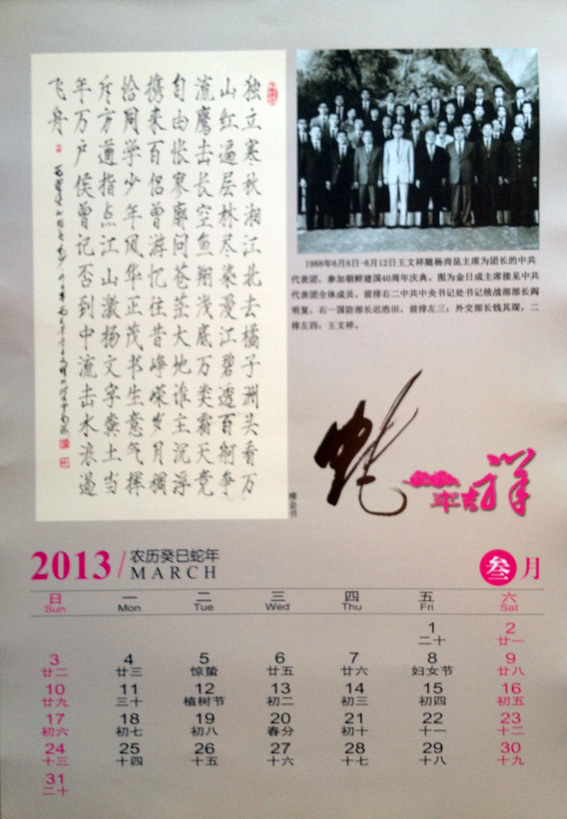 独立寒秋湘江北去橘子洲头看万
山红遍层林尽染漫江碧透百舸争
流鹰击长空鱼翔浅底万类霜天竞
自由怅寥廓问苍茫大地谁主沉浮
携来百侣曾游忆往昔峥嵘岁月稠
恰同学少年风华正茂书生意气挥
斥方遒指点江山激扬文字粪土当
年万户侯曾记否到中流击水浪遏
飞舟
瘦金书
1988年6月6日-6月12日王文祥随杨尚昆主席为团长的中共
代表团，参加朝鲜建国40周年庆典。图为金日成主席接见中共
代表团全体成员。前排右二中共中央书记处书记统战部部长阎
明复，右一国防部长迟浩田。前排左三：外交部长钱其琛，二
排左四：王文祥。
蛇年吉祥
2013/农历癸巳蛇年
MARCH
叁月
日 一 二 三 四 五 六
Sun Mon Tue Wed Thu Fri Sat
1 2
二十 廿一
3 4 5 6 7 8 9
廿二 廿三 惊蛰 廿五 廿六 妇女节 廿八
10 11 12 13 14 15 16
廿九 三十 植树节 初二 初三 初四 初五
17 18 19 20 21 22 23
初六 初七 初八 春分 初十 十一 十二
24 25 26 27 28 29 30
十三 十四 十五 十六 十七 十八 十九
31
二十